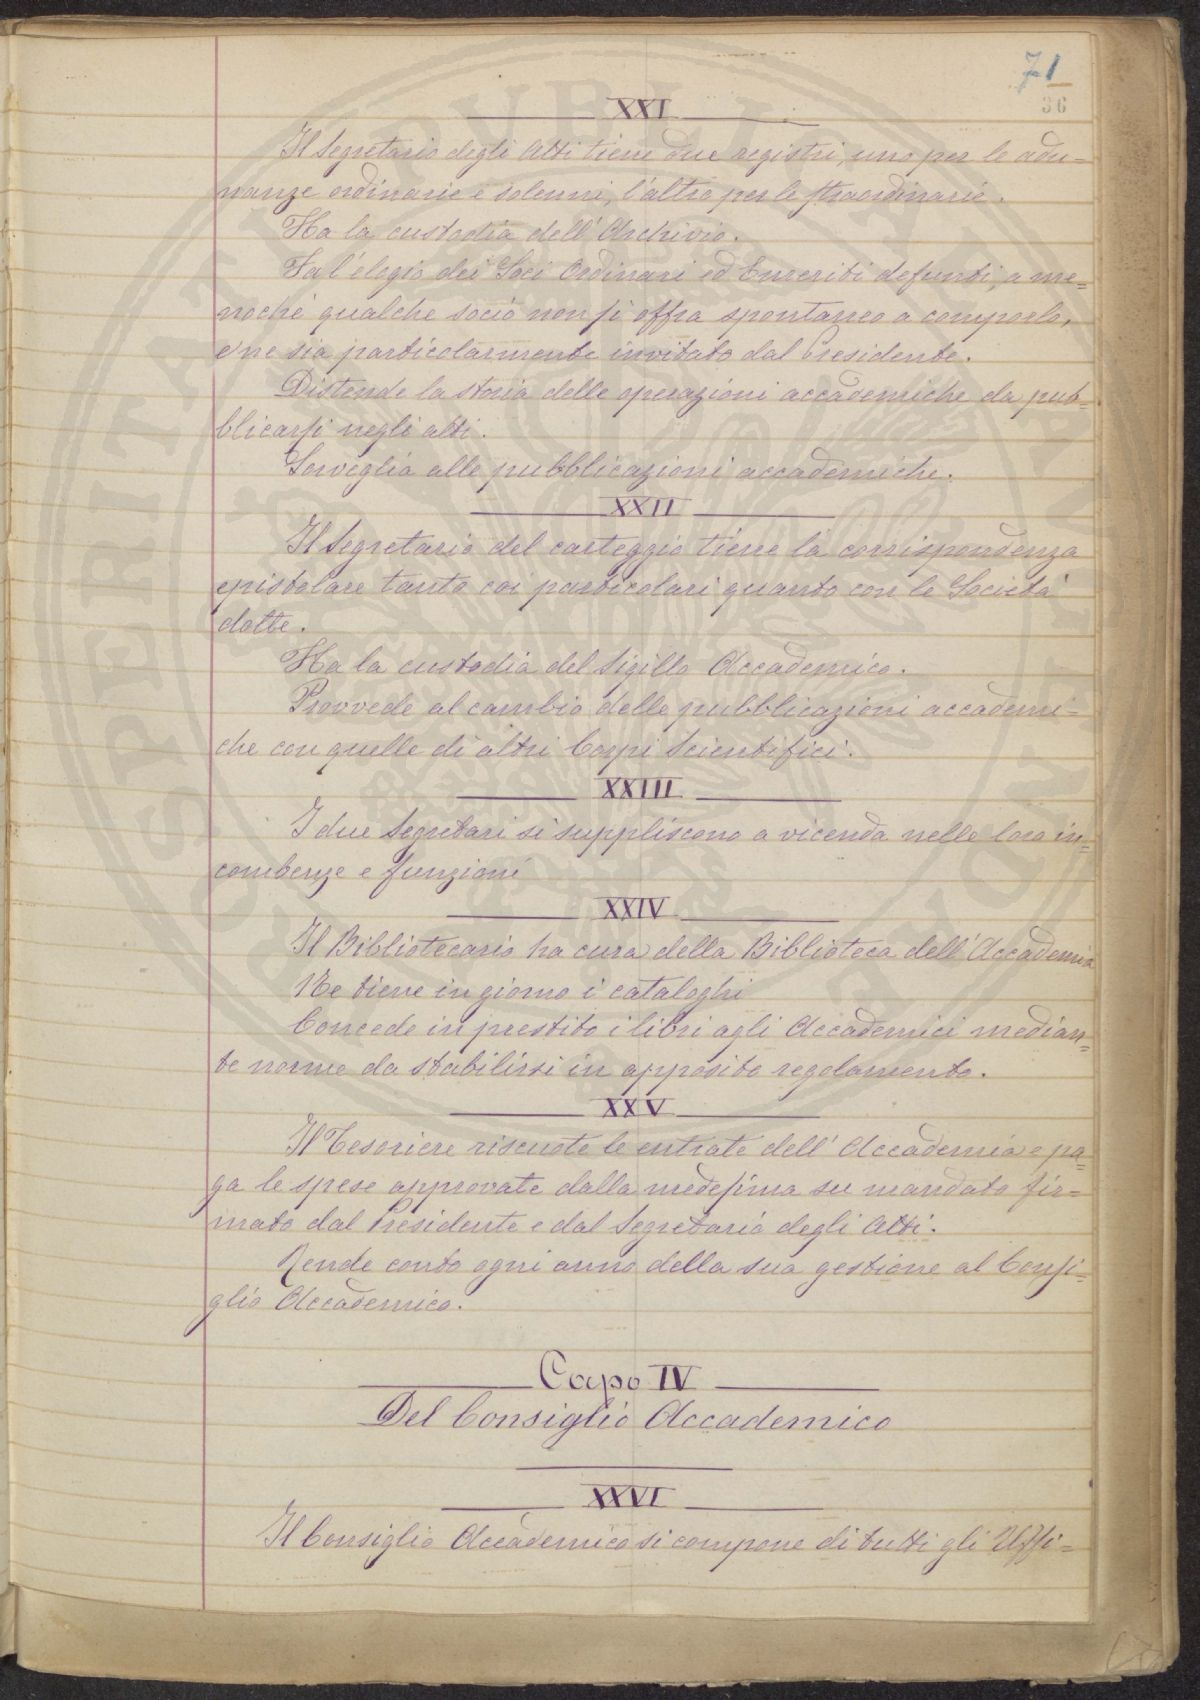 71
36
XXI
Il Segretario degli Atti tiene due registri, uno per le adu=
nanze ordinarie e solenni, l'altro per le straordinarie.
Ha la custodia dell'Archivio.
Fa l'elogio dei Soci Ordinari ed Emeriti defunti, a me=
noché qualche socio non si offra spontaneo a comporlo,
o ne sia particolarmente invitato dal Presidente.
Distende la storia delle operazioni accademiche da pub=
blicarsi negli atti.
Sorveglia alle pubblicazioni accademiche.
XXII
Il Segretario del carteggio tiene la corrispondenza
epistolare tanto coi particolari quanto con le Società
dotte.
Ha la custodia del Sigillo Accademico.
Provvede al cambio delle pubblicazioni accademi=
che con quelle di altri Corpi Scientifici.
XXIII
I due Segretari si suppliscono a vicenda nelle loro in=
combenze e funzioni
XXIV
Il Bibliotecario ha cura della Biblioteca dell'Accademia
Ne tiene in giorno i cataloghi
Concede in prestito i libri agli Accademici median=
te norme da stabilirsi in apposito regolamento.
XXV
Il Tesoriere riscuote le entrate dell'Accademia e pa=
ga le spese approvate dalla medesima su mandato fir=
mato dal Presidente e dal Segretario degli Atti.
Rende conto ogni anno della sua gestione al Consi=
glio Accademico.
Capo IV
Del Consiglio Accademico
XXVI
Il Consiglio Accademico si compone di tutti gli Uffi=